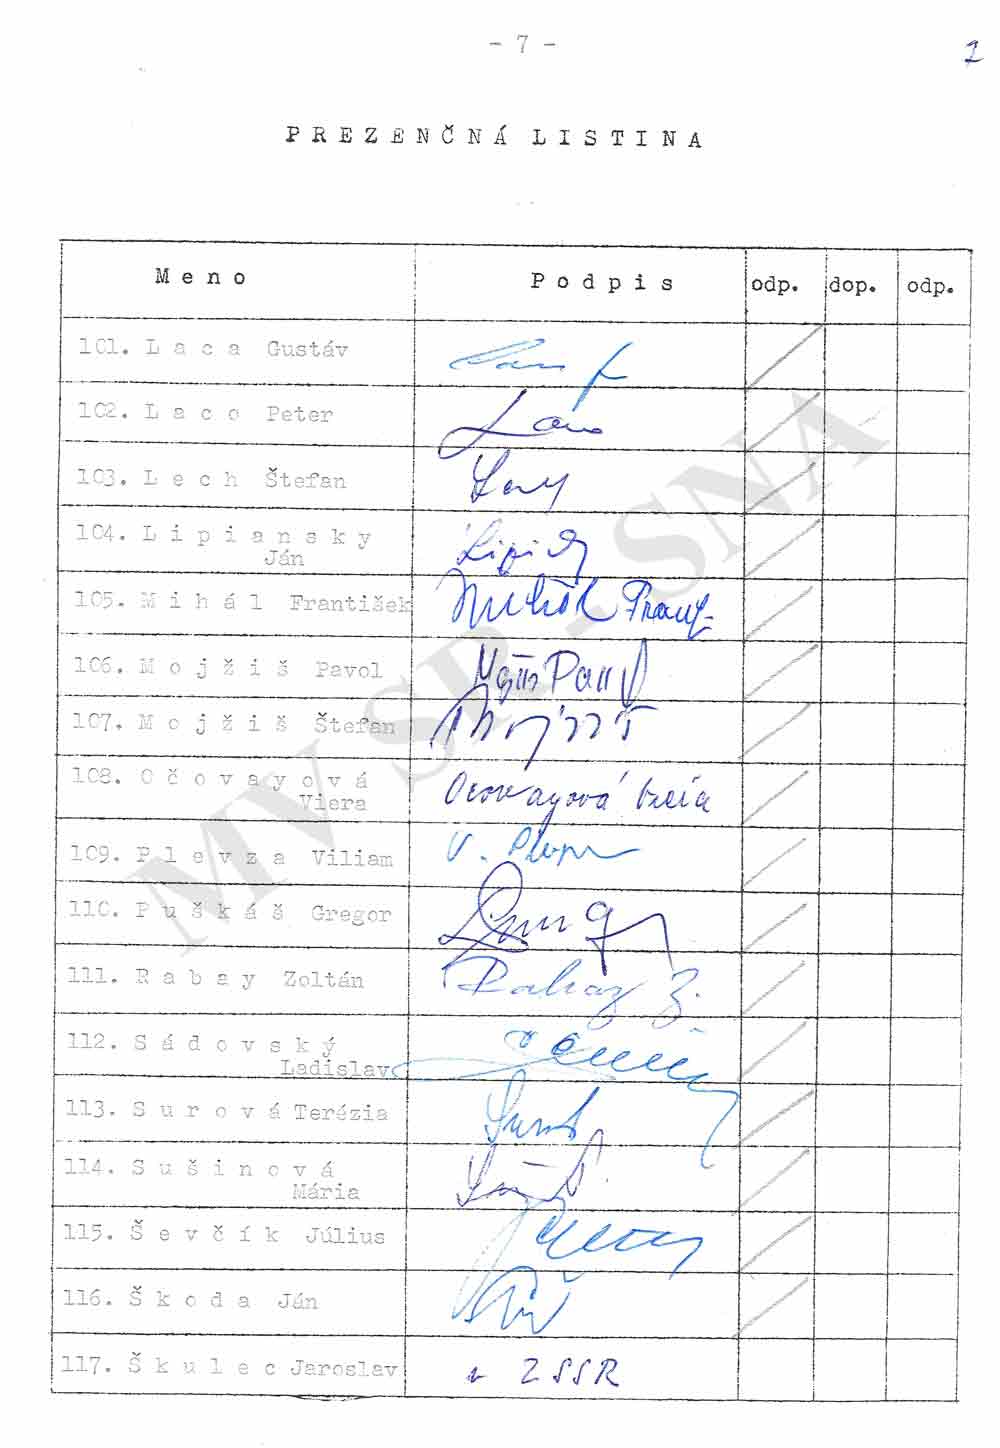 - 7 -
2
PREZENČNÁ LISTINA
Meno Podpis odp. dop. odp.
101. Laca Gustáv
102. Laco Peter Laco
103. Lech Štefan
104. Lipiansky
Ján
105. Mihál František Mihál Frant.
106. Mojžiš Pavol
107. Mojžiš Štefan Mojžiš
108. Očovayová
Viera Očovayová Viera
109. Plevza Viliam V. Plevza
110. Puškáš Gregor
111. Rabay Zoltán Rabay Z.
112. Sádovský
Ladislav
113. Surová Terézia
114. Sušinová
Mária
115. Ševčík Július
116. Škoda Ján
117. Škulec Jaroslav v ZSSR
MV SR - SNA